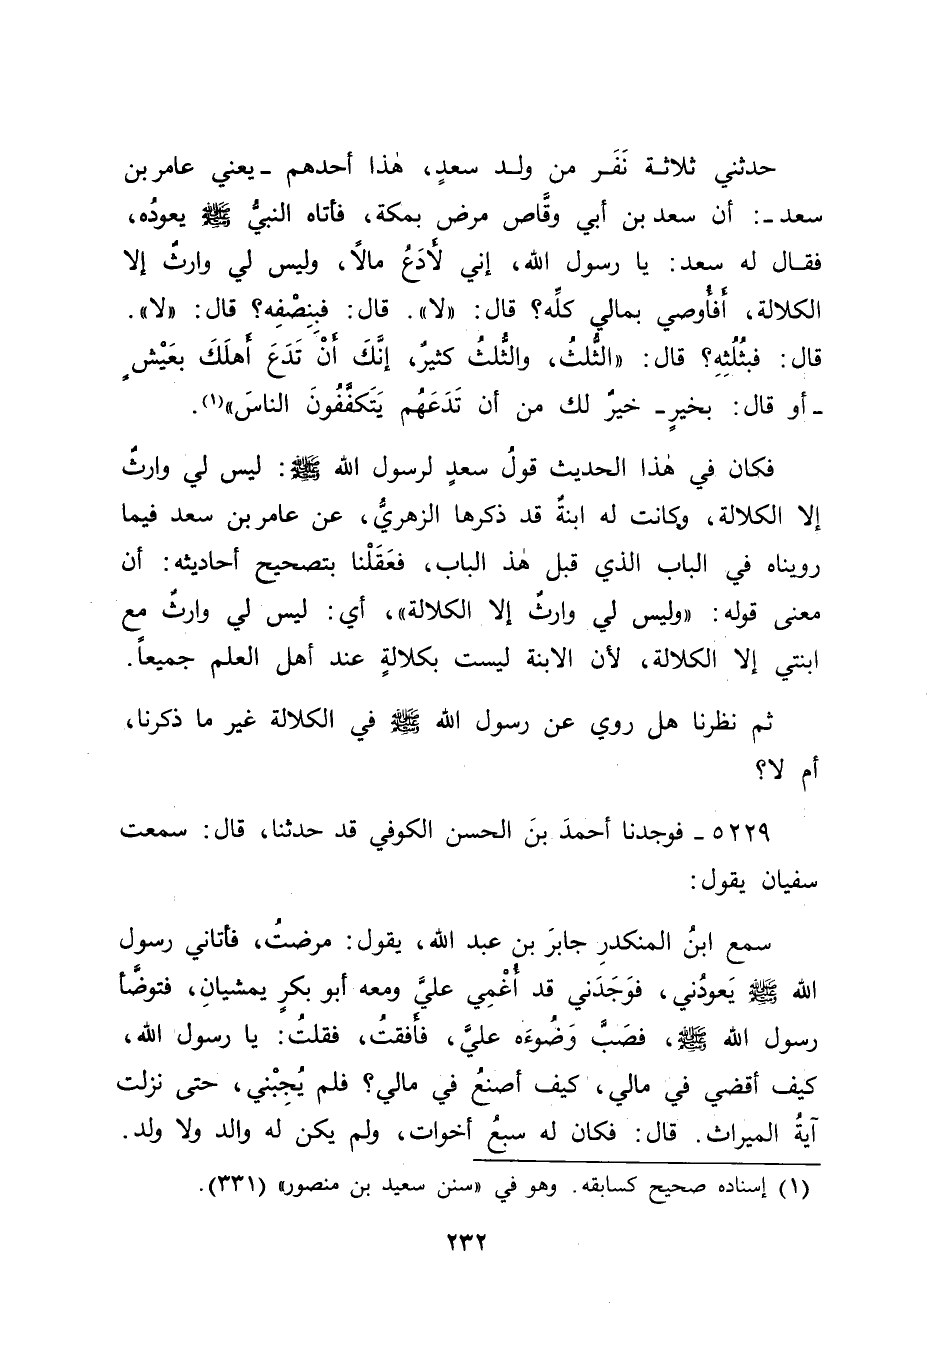 حدثني ثلاثة نَفَر من ولد سعدٍ، هٰذا أحدهم ـ يعني عامر بن
سعد ـ: أن سعد بن أبي وقَّاص مرض بمكة، فأتاه النبيُّ ﷺ يعودُه،
فقال له سعد: يا رسول الله، إني لَأَدَعُ مالاً، وليس لي وارثٌ إلا
الكلالة، أَفَأُوصي بمالي كلِّه؟ قال: «لا». قال: فبِنِصْفِه؟ قال: «لا».
قال: فبثُلُثِهِ؟ قال: «الثُّلثُ، والثُّلثُ كثيرٌ، إنَّكَ أَنْ تَدَعَ أَهلَكَ بعَيْشٍ
ـ أو قال: بخيرٍ ـ خيرٌ لك من أن تَدَعَهُم يَتَكفَّفُونَ الناسَ»(١).
فكان في هٰذا الحديث قولُ سعدٍ لرسول الله ﷺ: ليس لي وارثٌ
إلا الكلالة، وكانت له ابنةٌ قد ذكرها الزهريُّ، عن عامر بن سعد فيما
رويناه في الباب الذي قبل هٰذ الباب، فعَقَلْنا بتصحيح أحاديثه: أن
معنى قوله: «وليس لي وارثٌ إلا الكلالة»، أي: ليس لي وارثٌ مع
ابنتي إلا الكلالة، لأن الابنة ليست بكلالةٍ عند أهل العلم جميعاً.
ثم نظرنا هل روي عن رسول الله ﷺ في الكلالة غير ما ذكرنا،
أم لا؟
٥٢٢٩ ـ فوجدنا أحمدَ بنَ الحسن الكوفي قد حدثنا، قال: سمعت
سفيان يقول:
سمع ابنُ المنكدرِ جابرَ بن عبد الله، يقول: مرضتُ، فأتاني رسول
الله ﷺ يَعودُني، فوَجَدَني قد أُغْمِي عليَّ ومعه أبو بكرٍ يمشيانِ، فتوضَّأ
رسول الله ﷺ، فصَبَّ وَضُوءَه عليَّ، فأفقتُ، فقلتُ: يا رسول الله،
كيف أقضي في مالي، كيف أصنعُ في مالي؟ فلم يُجِبْني، حتى نزلت
آيةُ الميراث. قال: فكان له سبعُ أخوات، ولم يكن له والد ولا ولد.
(١) إسناده صحيح كسابقه. وهو في «سنن سعيد بن منصور» (٣٣١).
٢٣٢